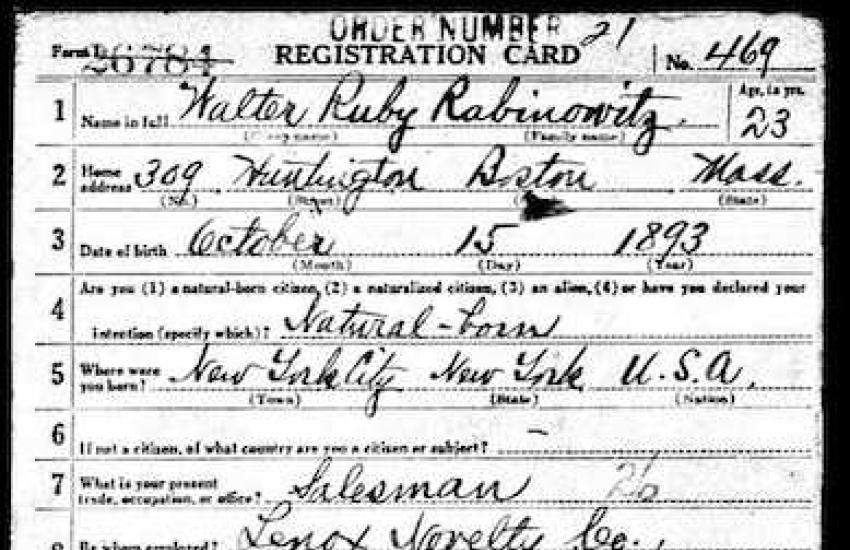 ORDER NUMBER 21
Form 1 26784 REGISTRATION CARD No. 469
1 Name in full Walter Ruby Rabinowitz Age, in yrs. 23
(Given name) (Family name)
2 Home address 309 Huntington Boston Mass.
(No.) (Street) (State)
3 Date of birth October 15 1893
(Month) (Day) (Year)
Are you (1) a natural-born citizen, (2) a naturalized citizen, (3) an alien, (4) or have you declared your
4 intention (specify which)? Natural-born
5 Where were you born? New York City New York U.S.A.
(Town) (State) (Nation)
6 If not a citizen, of what country are you a citizen or subject? -
7 What is your present trade, occupation, or office? Salesman
8 By whom employed? Lenox Novelty Co.